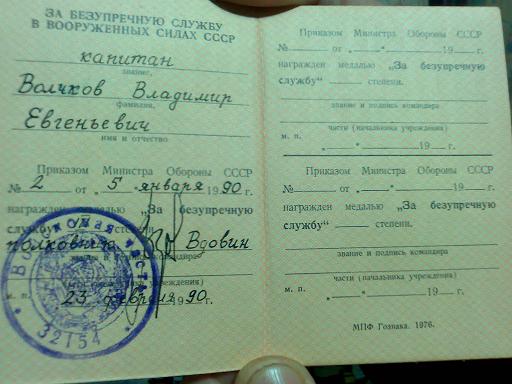 ЗА БЕЗУПРЕЧНУЮ СЛУЖБУ
В ВООРУЖЕННЫХ СИЛАХ СССР
капитан
звание,
Волчков Владимир
фамилия,
Евгеньевич
имя и отчество
Приказом Министра Обороны СССР
№ 2 от „ 5 “ января 1990 г.
награжден медалью „За безупречную
службу“ степени.
полковник Вдовин
звание и подпись командира
м. п.
23 февраля 1990 г.
Войсковая часть
32154
Приказом Министра Обороны СССР
№ от „ “ 19 г.
награжден медалью „За безупречную
службу“ степени.
звание и подпись командира
части (начальника учреждения)
м. п. „ “ 19 г.
Приказом Министра Обороны СССР
№ от „ “ 19 г.
награжден медалью „За безупречную
службу“ степени.
звание и подпись командира
части (начальника учреждения)
м. п. „ “ 19 г.
МПФ Гознака. 1976.